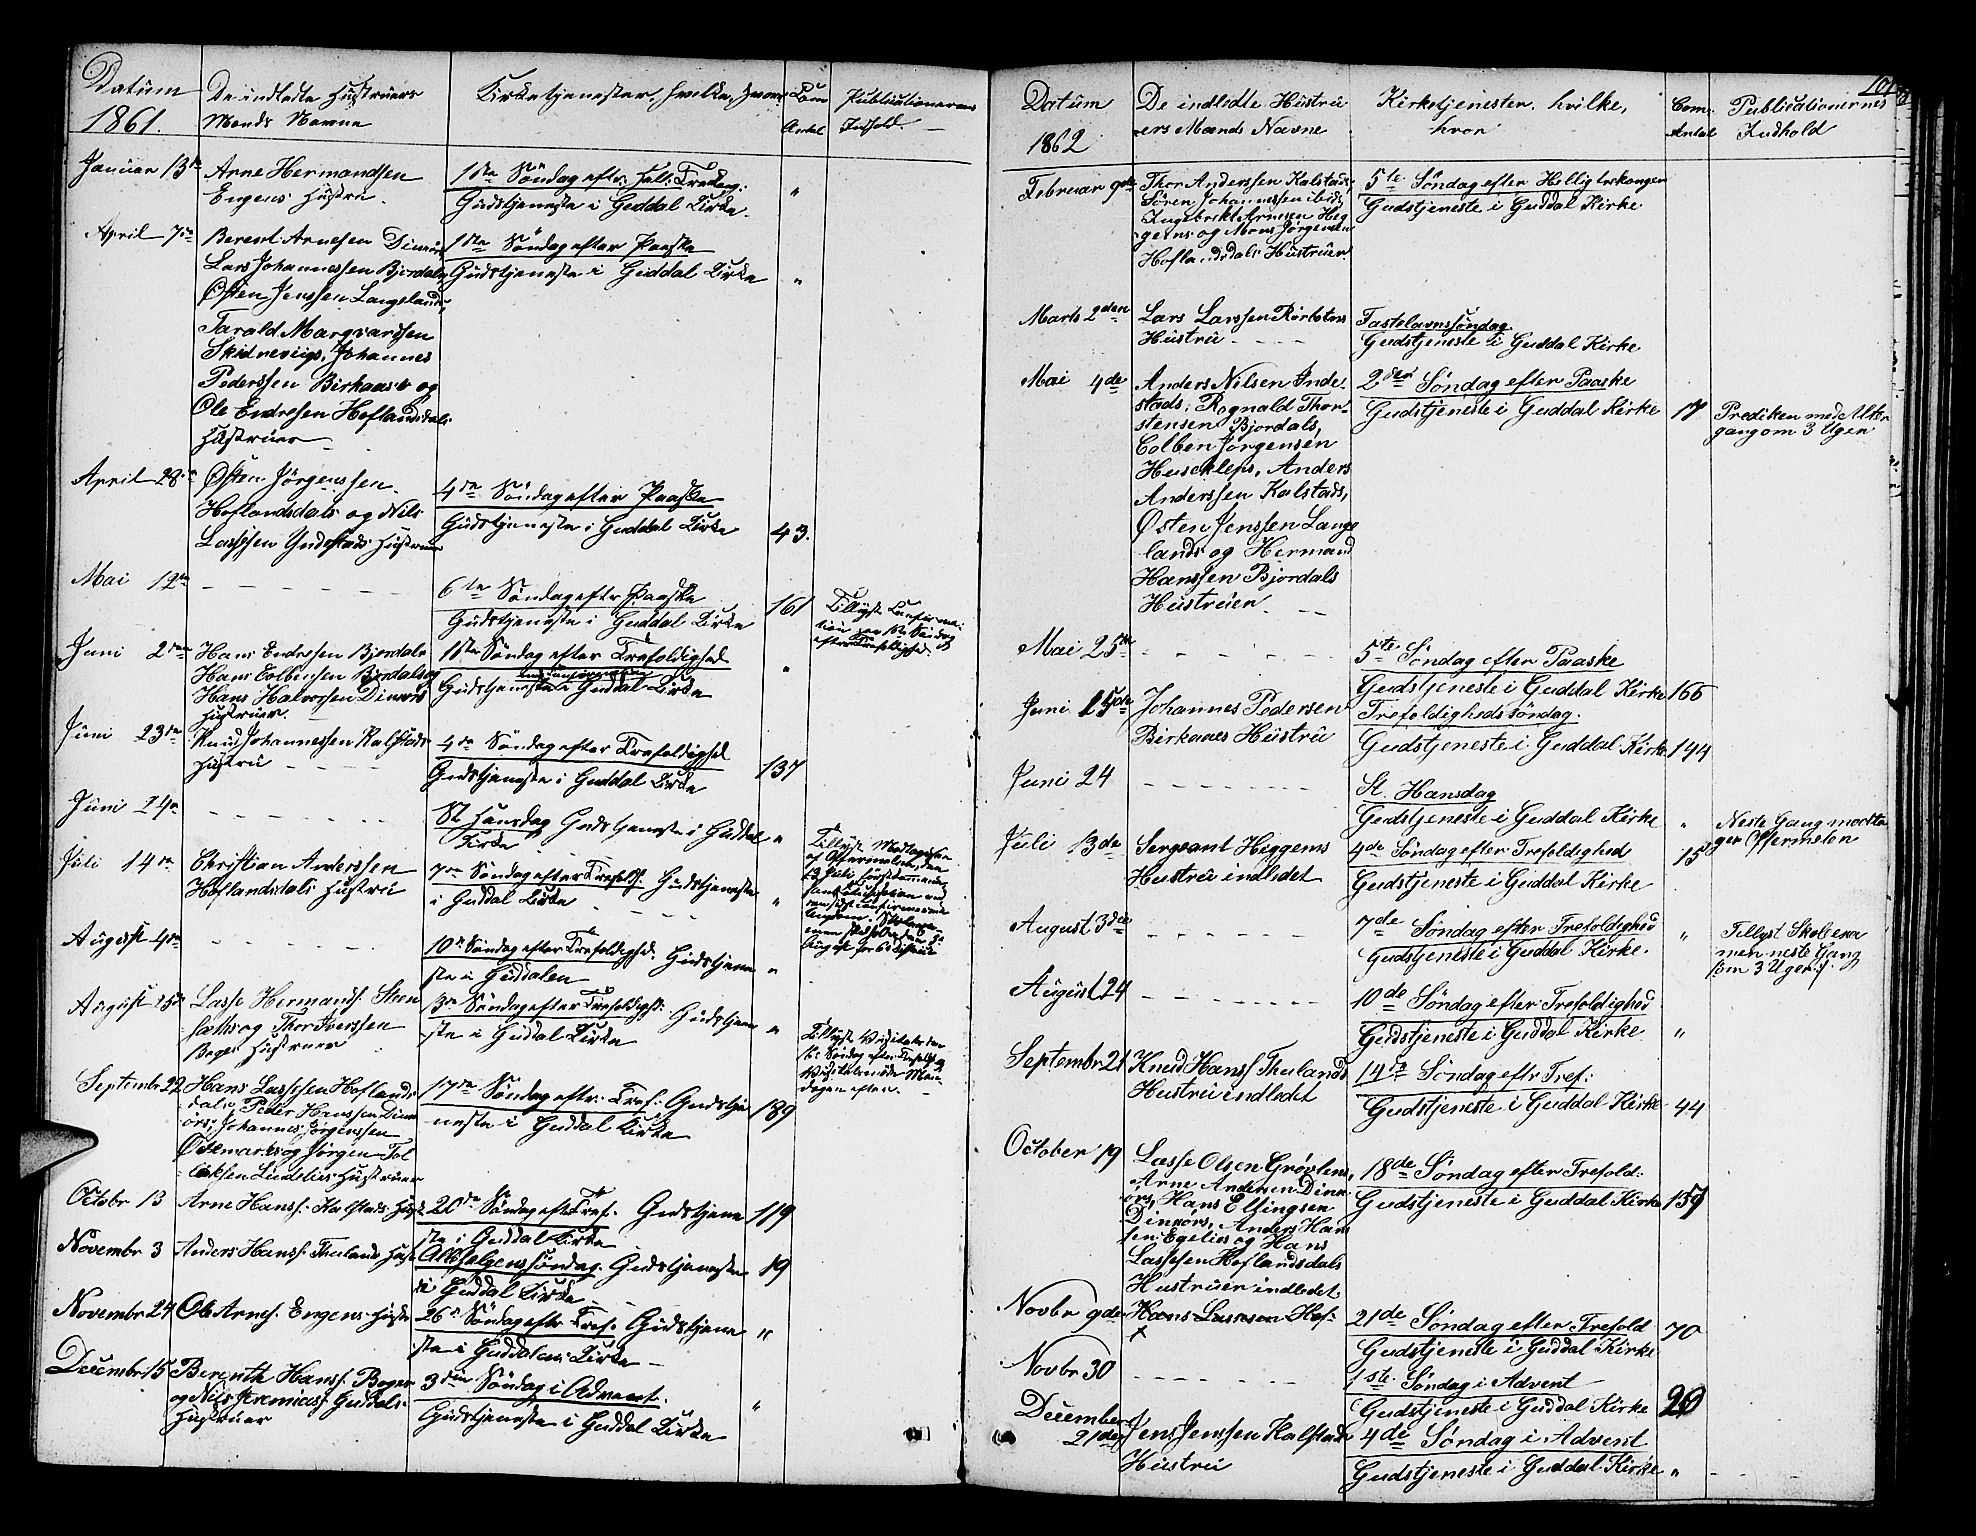 Datum
1861.
De indledte Hustruers
Mænds Navne
Kirketjenester, hvilke, hvor
Com.
Antal
Publicationernes
Indhold.
Januar 13de
Arne Hermandsen
Engens Hustru.
1ste Söndag eftr: Hell: Trekong:
Gudstjeneste i Guddal Kirke.
"
April 7de
Berent Arnesen Dinnørs
Lars Johannessen Bjordals,
Østen Jenssen Langelands,
Tarald Marqvardsen
Skidneviigs, Johannes
Pederssen Birkaas's og
Ole Endresen Hoflandsdals
Hustruer
1ste Söndag efter Paaske
Gudstjeneste i Guddal Kirke
"
April 28de
Østen Jörgenssen
Hoflandsdals og Nils
Lassesen Yndestads Hustruer
4de Söndag efter Paaske
Gudstjeneste i Guddal Kirke
43.
Mai 12te
6te Söndag eftr Paaske
Gudstjeneste i Guddal Kirke
161
Tillyst Confirma-
tion paa 1ste Söndag
efter Trefoldighed.
Juni 2den
Hans Endresen Bjordals
Hans Colbensen Bjordals og
Hans Halvorsen Dinnørs
Hustruer.
1ste Söndag efter Trefoldighed
med Confirmation
Gudstjeneste i Guddal Kirke
"
Juni 23de
Knud Johannessen Kalstads
Hustru
4de Söndag efter Trefoldighed
Gudstjeneste i Guddal Kirke
137
Juni 24de
St Hansdag Gudstjeneste i Guddal
Kirke
"
Juli 14de
Christian Anderssen
Hoflandsdals Hustru
7de Söndag efter Trefold: Gudstjeneste
i Guddal Kirke
"
Tillyst Modtagelse
af Offermelen, den
August 4de
10de Söndag efter Trefoldighed. Gudstjene
ste i Guddalen
"
August 25de
Lasse Hermands: Steen
sæths og Thor Iverssen
Bøges Hustruer
13de Söndag efter Trefoldighed: Gudstjene
ste i Guddal Kirke
"
Tillyst Visitats den
Söndag efter Trefold: og
dagen efter.
Septembr 22
Hans Lassesen Hoflands
dals, Peder Hanssen Dinn
örs, Johannes Jörgenssen
Ødemarks og Jörgen Tol
leksen Lidelies Hustruer
17de Söndag eftr: Tref: Gudstje
neste i Guddal Kirke
189
Octobr 13
Arne Hanss: Kalstads Hust
20de Söndag eftr Tref. Gudstjene
ste i Guddal Kirke
119
Novembr 3
Anders Hanss: Theulands Hust
Allehelgenssöndag. Gudstjeneste
i Guddal Kirke
19
Novembr 24
Ole Arnes: Engens Hustru
26de Söndag eftr Tref: Gudstjene
ste i Guddalens Kirke
"
Decembr 15
Berenth Hans: Bøges
og Nils Jeremiass: Guddals
Hustruer
3die Söndag i Advent.
Gudstjeneste i Guddal Kirke
"
101
Datum
1862
De indledte Hustru
ers Mænds Navne
Kirketjenesten, hvilke,
hvor
Com.
Antal
Publicationernes
Indhold
Februar 9de
Thor Anderssen Kalstads,
Sören Johannessen ibid,
Ingebrikt Arnesen Hæg
geims og Mons Jørgensen
Hoflandsdals Hustruer
5te Søndag efter Hellig trekonger
Gudstjeneste i Guddal Kirke
Marts 2den
Lars Larssen Rörbotns
Hustru
Fastelavnssöndag
Gudstjeneste i Guddal Kirke
Mai 4de
Anders Nilsen Inde-
stads, Rognald Thor-
stensen Bjordals,
Colben Jørgensen
Husekleps, Anders
Anderssen Kalstads,
Østen Jenssen Lange
lands og Hermand
Hanssen Bjordals
Hustruer.
2den Søndag efter Paaske
Gudstjeneste i Guddal Kirke
17
Prediken med Alter
gang om 3 Uger
Mai 25de
5te Søndag efter Paaske
Gudstjeneste i Guddal Kirke
166
Juni 15de
Johannes Pedersen
Birkaaes Hustru
Trefoldighedssöndag.
Gudstjeneste i Guddal Kirke
144
Juni 24
St. Hansdag
Gudstjeneste i Guddal Kirke
"
Neste Gang modta
ger Offermelen
Juli 13de
Sergeant Heggems
Hustru indledet
4de Søndag efter Trefoldighed
Gudstjeneste i Guddal Kirke
15
August 3die
7de Søndag efter Trefoldighed
Gudstjeneste i Guddal Kirke.
"
Tillyst Skoleexa
men neste Gang
(om 3 Uger)
August 24
10de Søndag efter Trefoldighed
Gudstjeneste i Guddal Kirke
"
Septembr 21
Knud Hanss Theulands
Hustru indledet
14de Søndag eftr Tref:
Gudstjeneste i Guddal Kirke
44
October 19
Lasse Olsen Grøvlens,
Arne Andersen Dinn
ørs, Hans Ellingsen
Dinnørs, Anders Hans
sen Egelies og Hans
Lassesen Hoflandsdals
Hustruer indledet
18de Søndag efter Trefold:
Gudstjeneste i Guddal Kirke
159
Novbr 9de
Hans Lassesen Hof:
21de Søndag efter Trefold
Gudstjeneste i Guddal Kirke
70
Novbr 30
1ste Søndag i Advent
Gudstjeneste i Guddal Kirke
20
December
21de
Jens Jenssen Kalstads
Hustru
4de Søndag i Advent
Gudstjeneste i Guddal Kirke
"